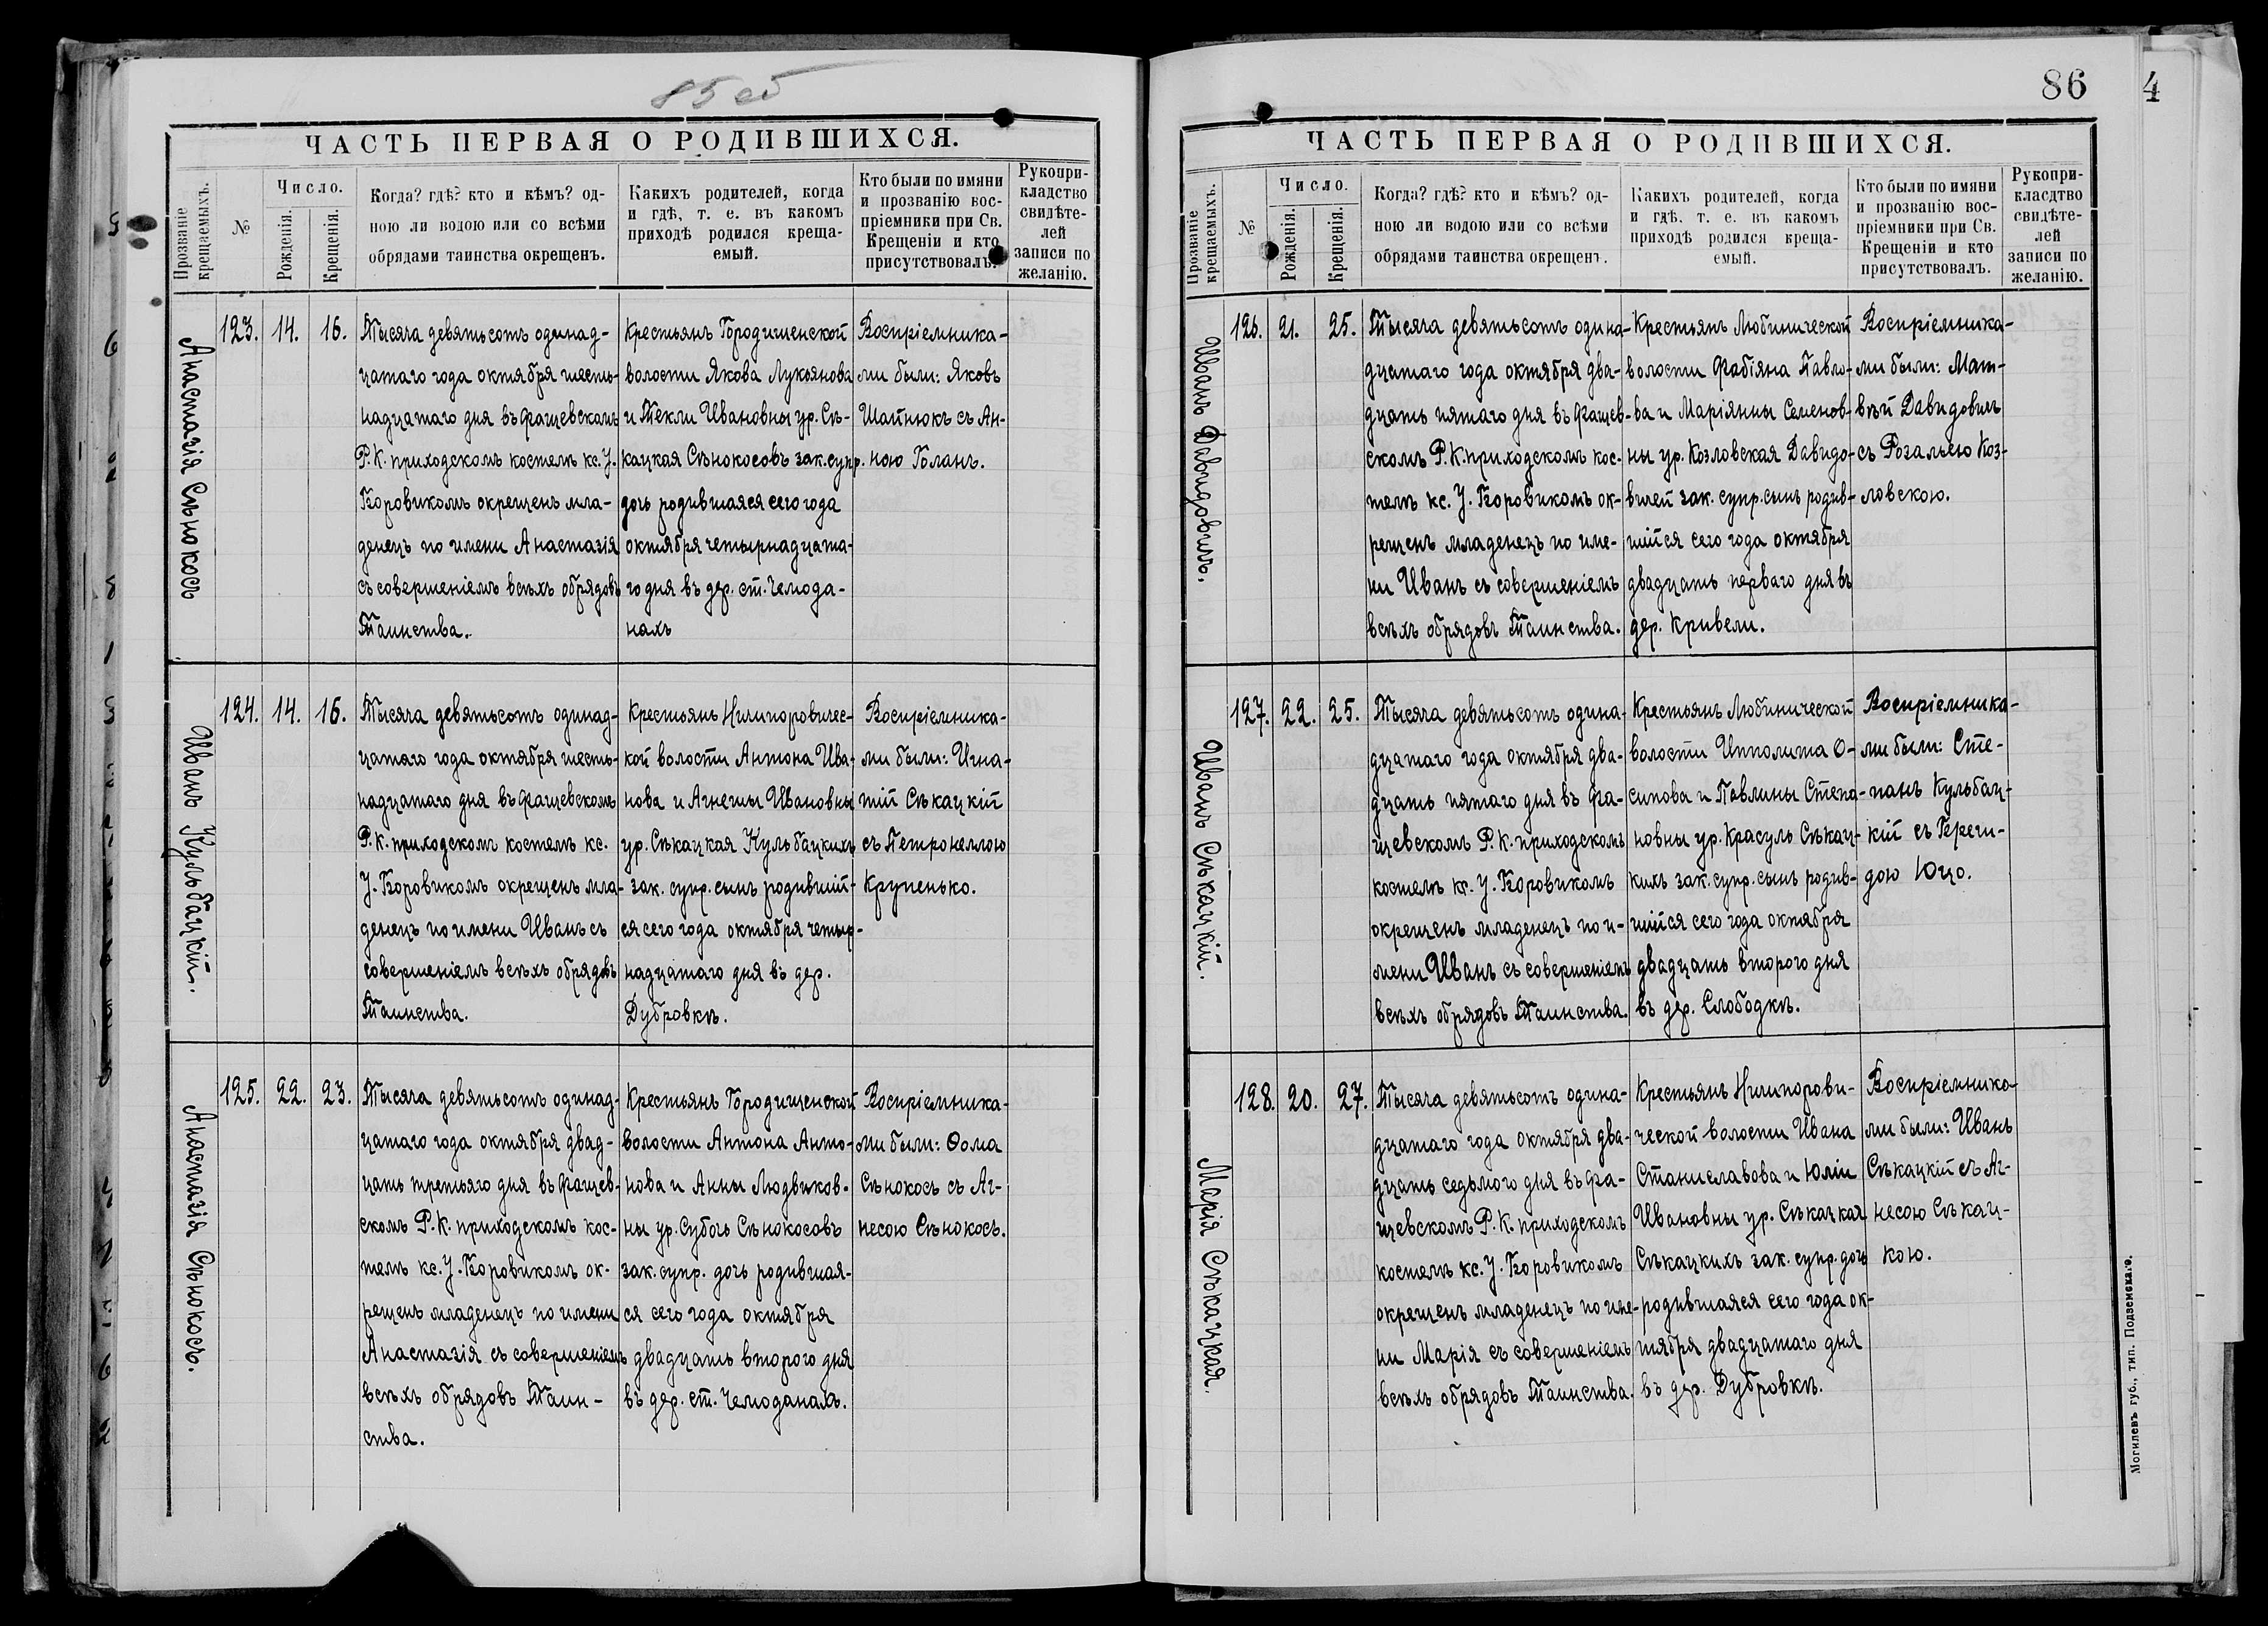 85 об
ЧАСТЬ ПЕРВАЯ О РОДИВШИХСЯ.
Прозваніе крещаемыхъ.
№
Число.
Рожденія.
Крещенія.
Когда? гдѣ? кто и кѣмъ? од-
ною ли водою или со всѣми
обрядами таинства окрещенъ.
Какихъ родителей, когда
и гдѣ, т. е. въ какомъ
приходѣ родился креща-
емый.
Кто были по имяни
и прозванію вос-
пріемники при Св.
Крещеніи и кто
присутствовалъ.
Рукопри-
кладство
свидѣте-
лей
записи по
желанію.
Анастазія Сѣнокосъ
123. 14. 16.
Тысяча девятьсотъ одинад-
цатаго года октября шесть-
надцатаго дня въ Фащевскомъ
Р. К. приходскомъ костелѣ кс. У.
Боровикомъ окрещенъ мла-
денецъ по имени Анастазія
съ совершеніемъ всѣхъ обрядовъ
Таинства.
Крестьянъ Городищенской
волости Якова Лукьянова
и Текли Ивановны ур. Сѣ-
кацкая Сѣнокосовъ зак. супр.
дочь родившаяся сего года
октября четырнадцата-
го дня въ дер. ст. Чемода-
нахъ
Воспріемника-
ми были: Яковъ
Шапнюкъ съ Ан-
ною Бланъ.
Иванъ Кульбацкій.
124. 14. 16.
Тысяча девятьсотъ одинад-
цатаго года октября шесть-
надцатаго дня въ Фащевскомъ
Р. К. приходскомъ костелѣ кс.
У. Боровикомъ окрещенъ мла-
денецъ по имени Иванъ съ
совершеніемъ всѣхъ обрядовъ
Таинства.
Крестьянъ Ничипоровичес-
кой волости Антона Ива-
нова и Агнешы Ивановны
ур. Сѣкацкая Кульбацкихъ
зак. супр. сынъ родившій-
ся сего года октября четыр-
надцатаго дня въ дер.
Дубровкѣ.
Воспріемника-
ми были: Игна-
тій Сѣкацкій
съ Петронеллою
Крупенько.
Анастазія Сѣнокосъ.
125. 22. 23.
Тысяча девятьсотъ одинад-
цатаго года октября двад-
цать третьяго дня въ Фащев-
скомъ Р. К. приходскомъ кос-
телѣ кс. У. Боровикомъ ок-
рещенъ младенецъ по имени
Анастазія съ совершеніемъ
всѣхъ обрядовъ Таин-
ства.
Крестьянъ Городищенской
волости Антона Анто-
нова и Анны Людвиков-
ны ур. Субочь Сѣнокосовъ
зак. супр. дочь родившая-
ся сего года октября
двадцать второго дня
въ дер. ст. Чемоданахъ.
Воспріемника-
ми были: Ѳома
Сѣнокосъ съ Аг-
несою Сѣнокосъ.
86
4
ЧАСТЬ ПЕРВАЯ О РОДИВШИХСЯ.
Прозваніе крещаемыхъ.
№
Число.
Рожденія.
Крещенія.
Когда? гдѣ? кто и кѣмъ? од-
ною ли водою или со всѣми
обрядами таинства окрещенъ.
Какихъ родителей, когда
и гдѣ. т. е. въ какомъ
приходѣ родился креща-
емый.
Кто были по имяни
и прозванію вос-
пріемники при Св.
Крещеніи и кто
присутствовалъ.
Рукопри-
класдтво
свидѣте-
лей
записи по
желанію.
Иванъ Давидовичъ.
126. 21. 25.
Тысяча девятьсотъ одина-
дцатаго года октября два-
дцать пятаго дня въ Фащев-
скомъ Р. К. приходскомъ кос-
телѣ кс. У. Боровикомъ ок-
рещенъ младенецъ по име-
ни Иванъ съ совершеніемъ
всѣхъ обрядовъ Таинства.
Крестьянъ Любинической
волости Фабіяна Павло-
ва и Маріянны Семенов-
ны ур. Козловская Давидо-
вичей зак. супр. сынъ родив-
шійся сего года октября
двадцать перваго дня въ
дер. Кривели.
Воспріемника-
ми были: Мат-
вѣй Давидовичъ
съ Розальею Коз-
ловскою.
Иванъ Сѣкацкій.
127. 22. 25.
Тысяча девятьсотъ одина-
дцатаго года октября два-
дцать пятаго дня въ Фа-
щевскомъ Р. К. приходскомъ
костелѣ кс. У. Боровикомъ
окрещенъ младенецъ по и-
мени Иванъ съ совершеніемъ
всѣхъ обрядовъ Таинства.
Крестьянъ Любинической
волости Ипполита О-
сипова и Павлины Степа-
новны ур. Красуль Сѣкац-
кихъ зак. супр. сынъ родив-
шійся сего года октября
двадцать второго дня
въ дер. Слободкѣ.
Воспріемника-
ми были: Сте-
панъ Кульбац-
кій съ
Юцо.
Марія Сѣкацкая.
128. 20. 27.
Тысяча девятьсотъ одина-
дцатаго года октября два-
дцать седьмого дня въ Фа-
щевскомъ Р. К. приходскомъ
костелѣ кс. У. Боровикомъ
окрещенъ младенецъ по име-
ни Марія съ совершеніемъ
всѣхъ обрядовъ Таинства.
Крестьянъ Ничипорови-
ческой волости Ивана
Станиславова и Юліи
Ивановны ур. Сѣкацкая
Сѣкацкихъ зак. супр. дочь
родившаяся сего года ок-
тября двадцатаго дня
въ дер. Дубровкѣ.
Воспріемника-
ми были: Иванъ
Сѣкацкій съ Аг-
несою Сѣкац-
кою.
Могилевъ губ., тип. Подземскаго.